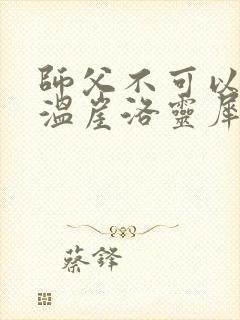 師父不可以
溫崖洛靈犀
蔡鋒